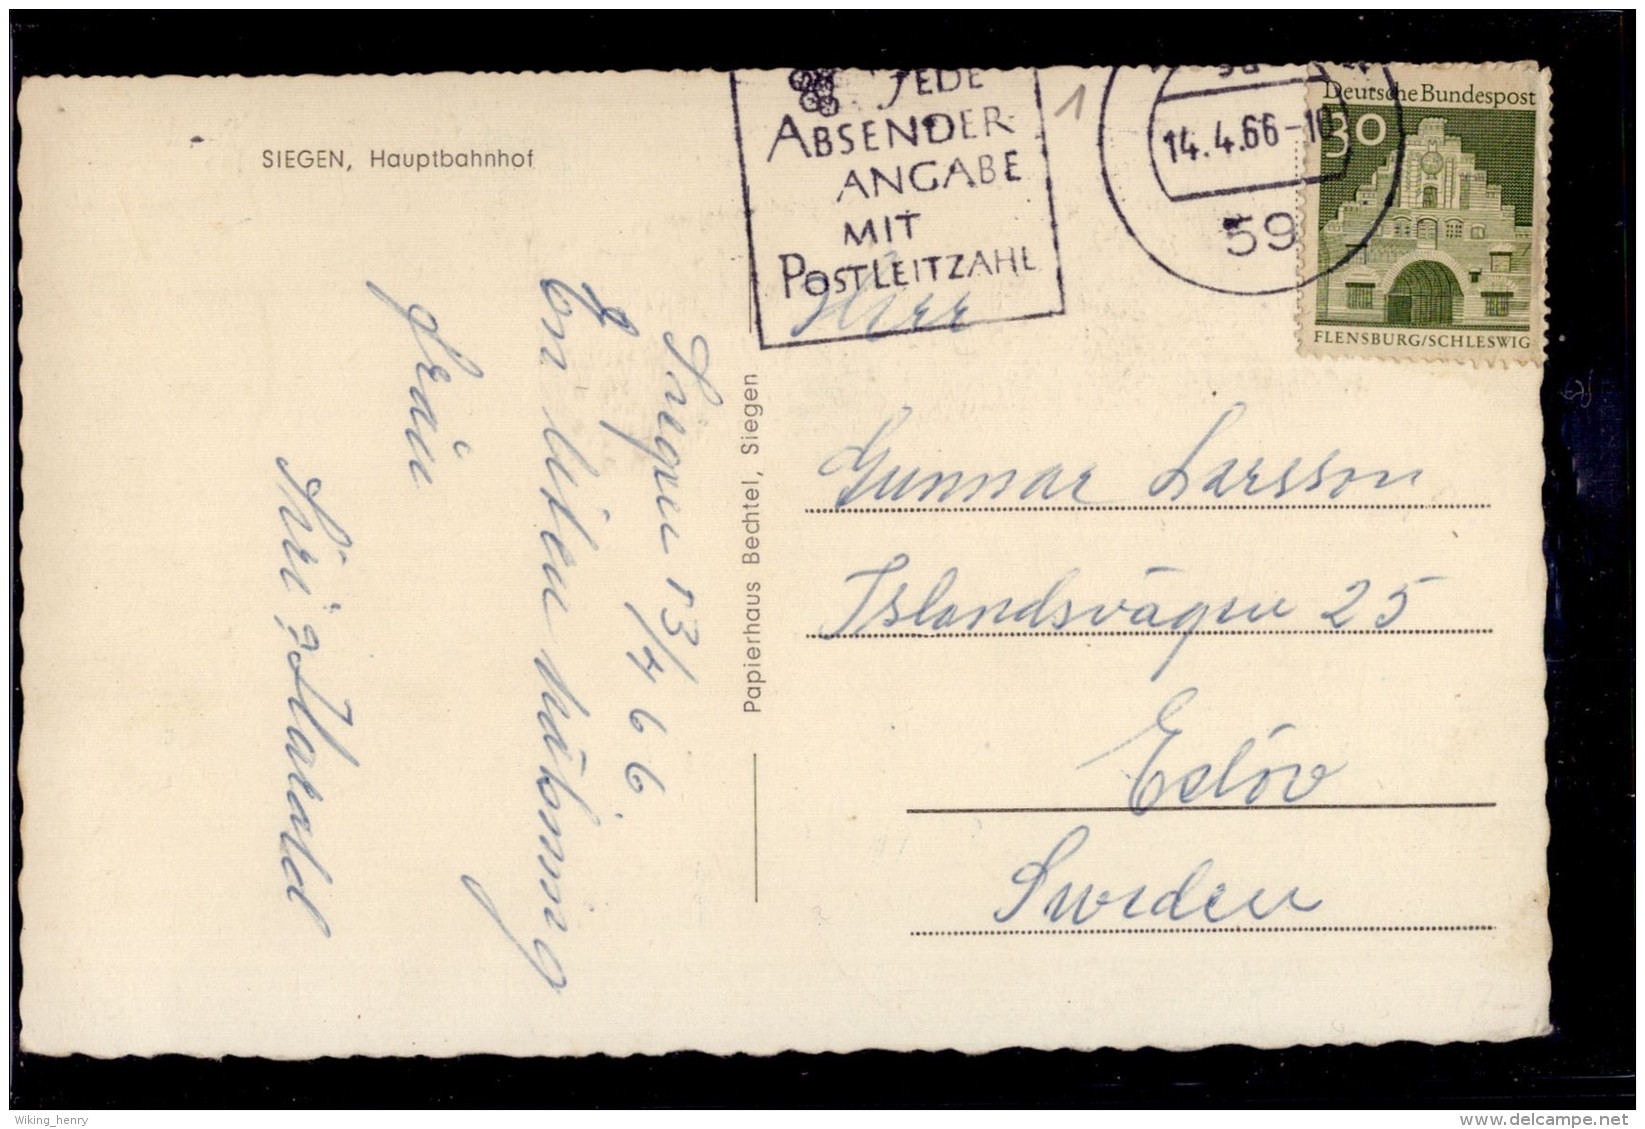 SIEGEN, Hauptbahnhof
JEDE
ABSENDER-
ANGABE
MIT
POSTLEITZAHL
1
14.4.66-10
59
Deutsche Bundespost
30
FLENSBURG/SCHLESWIG
Siegen 13/4 66
En liten hälsning
från
Siri o Harald
Papierhaus Bechtel, Siegen
Herr
Gunnar Larsson
Islandsvägen 25
Eslöv
Sweden
Wiking_henry
delcampe.net